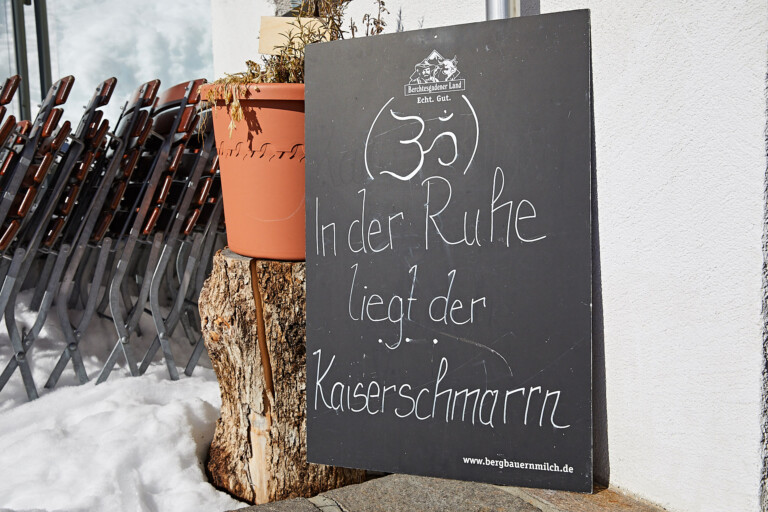 Berchtesgadener Land
Echt. Gut.
(ॐ)
In der Ruhe
liegt der
Kaiserschmarrn
www.bergbauernmilch.de